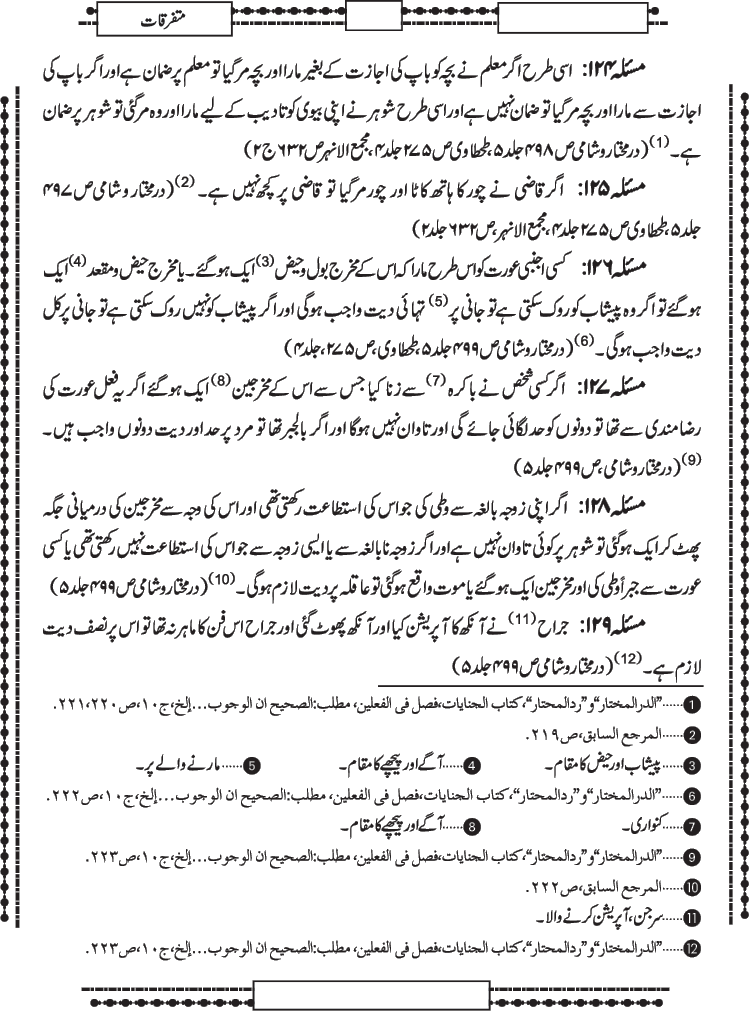 متفرقات
مسئلہ ۱۲۴: اسی طرح اگر معلم نے بچہ کو باپ کی اجازت کے بغیر مارا اور بچہ مرگیا تو معلم پر ضمان ہے اور اگر باپ کی
اجازت سے مارا اور بچہ مرگیا تو ضمان نہیں ہے اور اسی طرح شوہر نے اپنی بیوی کو تادیب کے لیے مارا اور وہ مرگئی تو شوہر پر ضمان
ہے۔(1) (درمختار و شامی ص ۴۹۸ جلد ۵، طحطاوی ص ۲۷۵ جلد ۴، مجمع الانہر ص ۶۳۲ ج ۲)
مسئلہ ۱۲۵: اگر قاضی نے چور کا ہاتھ کاٹا اور چور مرگیا تو قاضی پر کچھ نہیں ہے۔(2) (درمختار و شامی ص ۴۹۷
جلد ۵، طحطاوی ص ۲۷۵ جلد ۴، مجمع الانہر، ص ۶۳۲ جلد ۲)
مسئلہ ۱۲۶: کسی اجنبی عورت کو اس طرح مارا کہ اس کے مخرج بول و حیض(3) ایک ہوگئے۔ یا مخرج حیض و مقعد(4) ایک
ہوگئے تو اگر وہ پیشاب کو روک سکتی ہے تو جانی پر(5) تہائی دیت واجب ہوگی اور اگر پیشاب کو نہیں روک سکتی ہے تو جانی پر کل
دیت واجب ہوگی۔(6) (درمختار و شامی ص ۴۹۹ جلد ۵، طحطاوی، ص ۲۷۵، جلد ۴)
مسئلہ ۱۲۷: اگر کسی شخص نے باکرہ(7) سے زنا کیا جس سے اس کے مخرجین(8) ایک ہوگئے اگر یہ فعل عورت کی
رضامندی سے تھا تو دونوں کو حد لگائی جائے گی اور تاوان نہیں ہوگا اور اگر بالجبر تھا تو مرد پر حد اور دیت دونوں واجب ہیں۔
(9) (درمختار و شامی، ص ۴۹۹ جلد ۵)
مسئلہ ۱۲۸: اگر اپنی زوجہ بالغہ سے وطی کی جو اس کی استطاعت رکھتی تھی اور اس کی وجہ سے مخرجین کی درمیانی جگہ
پھٹ کر ایک ہوگئی تو شوہر پر کوئی تاوان نہیں ہے اور اگر زوجہ نابالغہ سے یا ایسی زوجہ سے جو اس کی استطاعت نہیں رکھتی تھی یا کسی
عورت سے جبراً وطی کی اور مخرجین ایک ہوگئے یا موت واقع ہوگئی تو عاقلہ پر دیت لازم ہوگی۔(10) (درمختار و شامی ص ۴۹۹ جلد ۵)
مسئلہ ۱۲۹: جراح(11) نے آنکھ کا آپریشن کیا اور آنکھ پھوٹ گئی اور جراح اس فن کا ماہر نہ تھا تو اس پر نصف دیت
لازم ہے۔(12) (درمختار و شامی ص ۴۹۹ جلد ۵)
1......”الدرالمختار“و”ردالمحتار“، کتاب الجنایات، فصل فی الفعلین، مطلب: الصحیح ان الوجوب...إلخ، ج۱۰، ص۲۲۰،۲۲۱.
2......المرجع السابق، ص۲۱۹.
3......پیشاب اور حیض کا مقام۔ 4......آگے اور پیچھے کا مقام۔ 5......مارنے والے پر۔
6......”الدرالمختار“و”ردالمحتار“، کتاب الجنایات، فصل فی الفعلین، مطلب: الصحیح ان الوجوب...إلخ، ج۱۰، ص۲۲۲.
7......کنواری۔ 8......آگے اور پیچھے کا مقام۔
9......”الدرالمختار“و”ردالمحتار“، کتاب الجنایات، فصل فی الفعلین، مطلب: الصحیح ان الوجوب...إلخ، ج۱۰، ص۲۲۳.
10......المرجع السابق، ص۲۲۲.
11......سرجن، آپریشن کرنے والا۔
12......”الدرالمختار“و”ردالمحتار“، کتاب الجنایات، فصل فی الفعلین، مطلب: الصحیح ان الوجوب...إلخ، ج۱۰، ص۲۲۳.